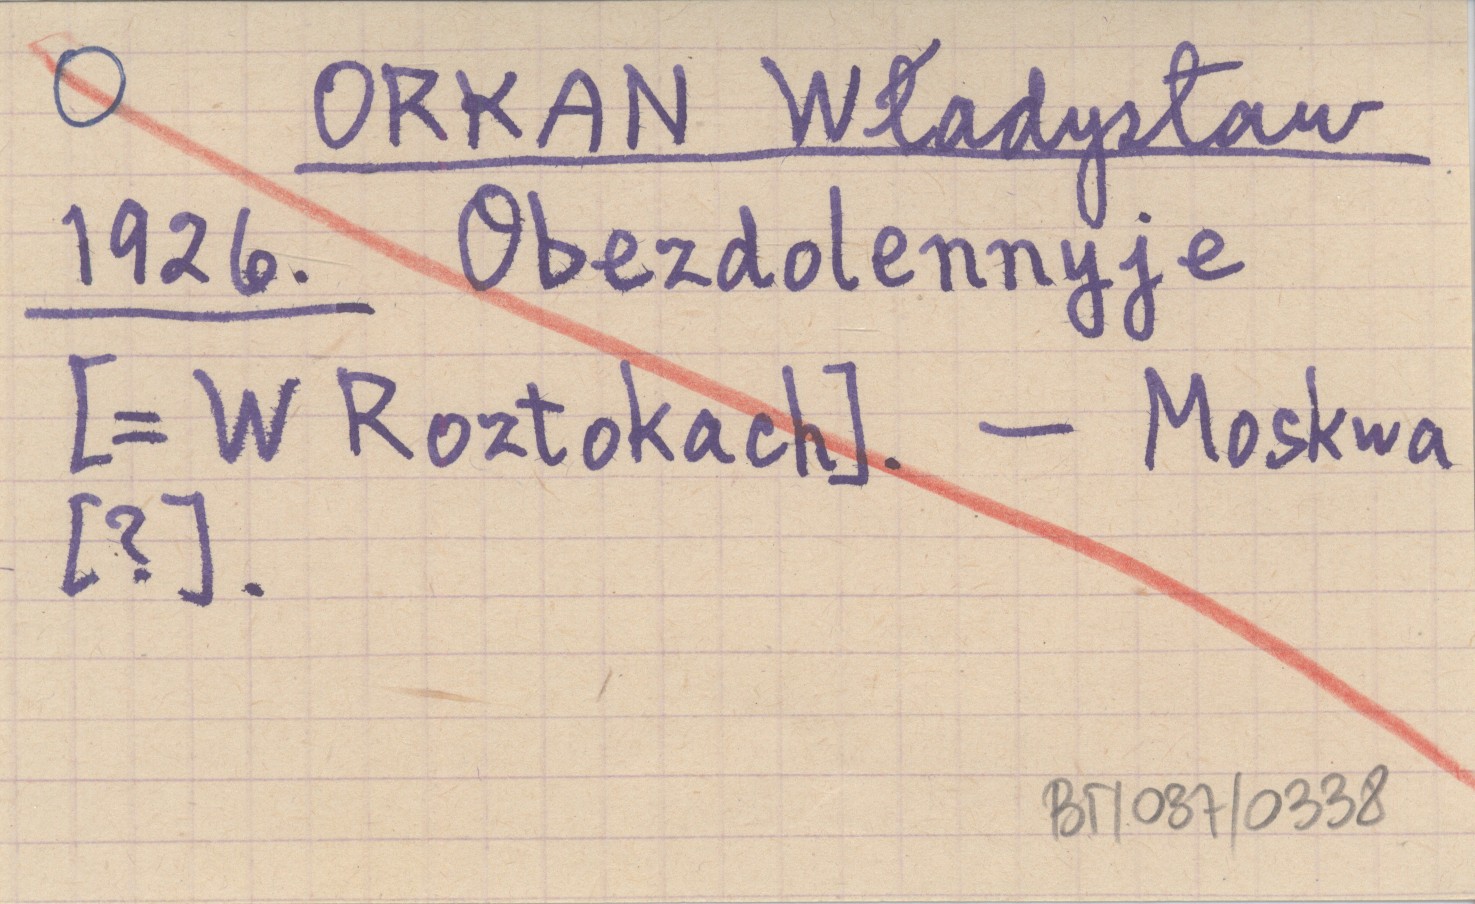 ORKAN Władysław
1926. Obezdolennyje
[= W Roztokach]. — Moskwa
[?].
BT/037/0338